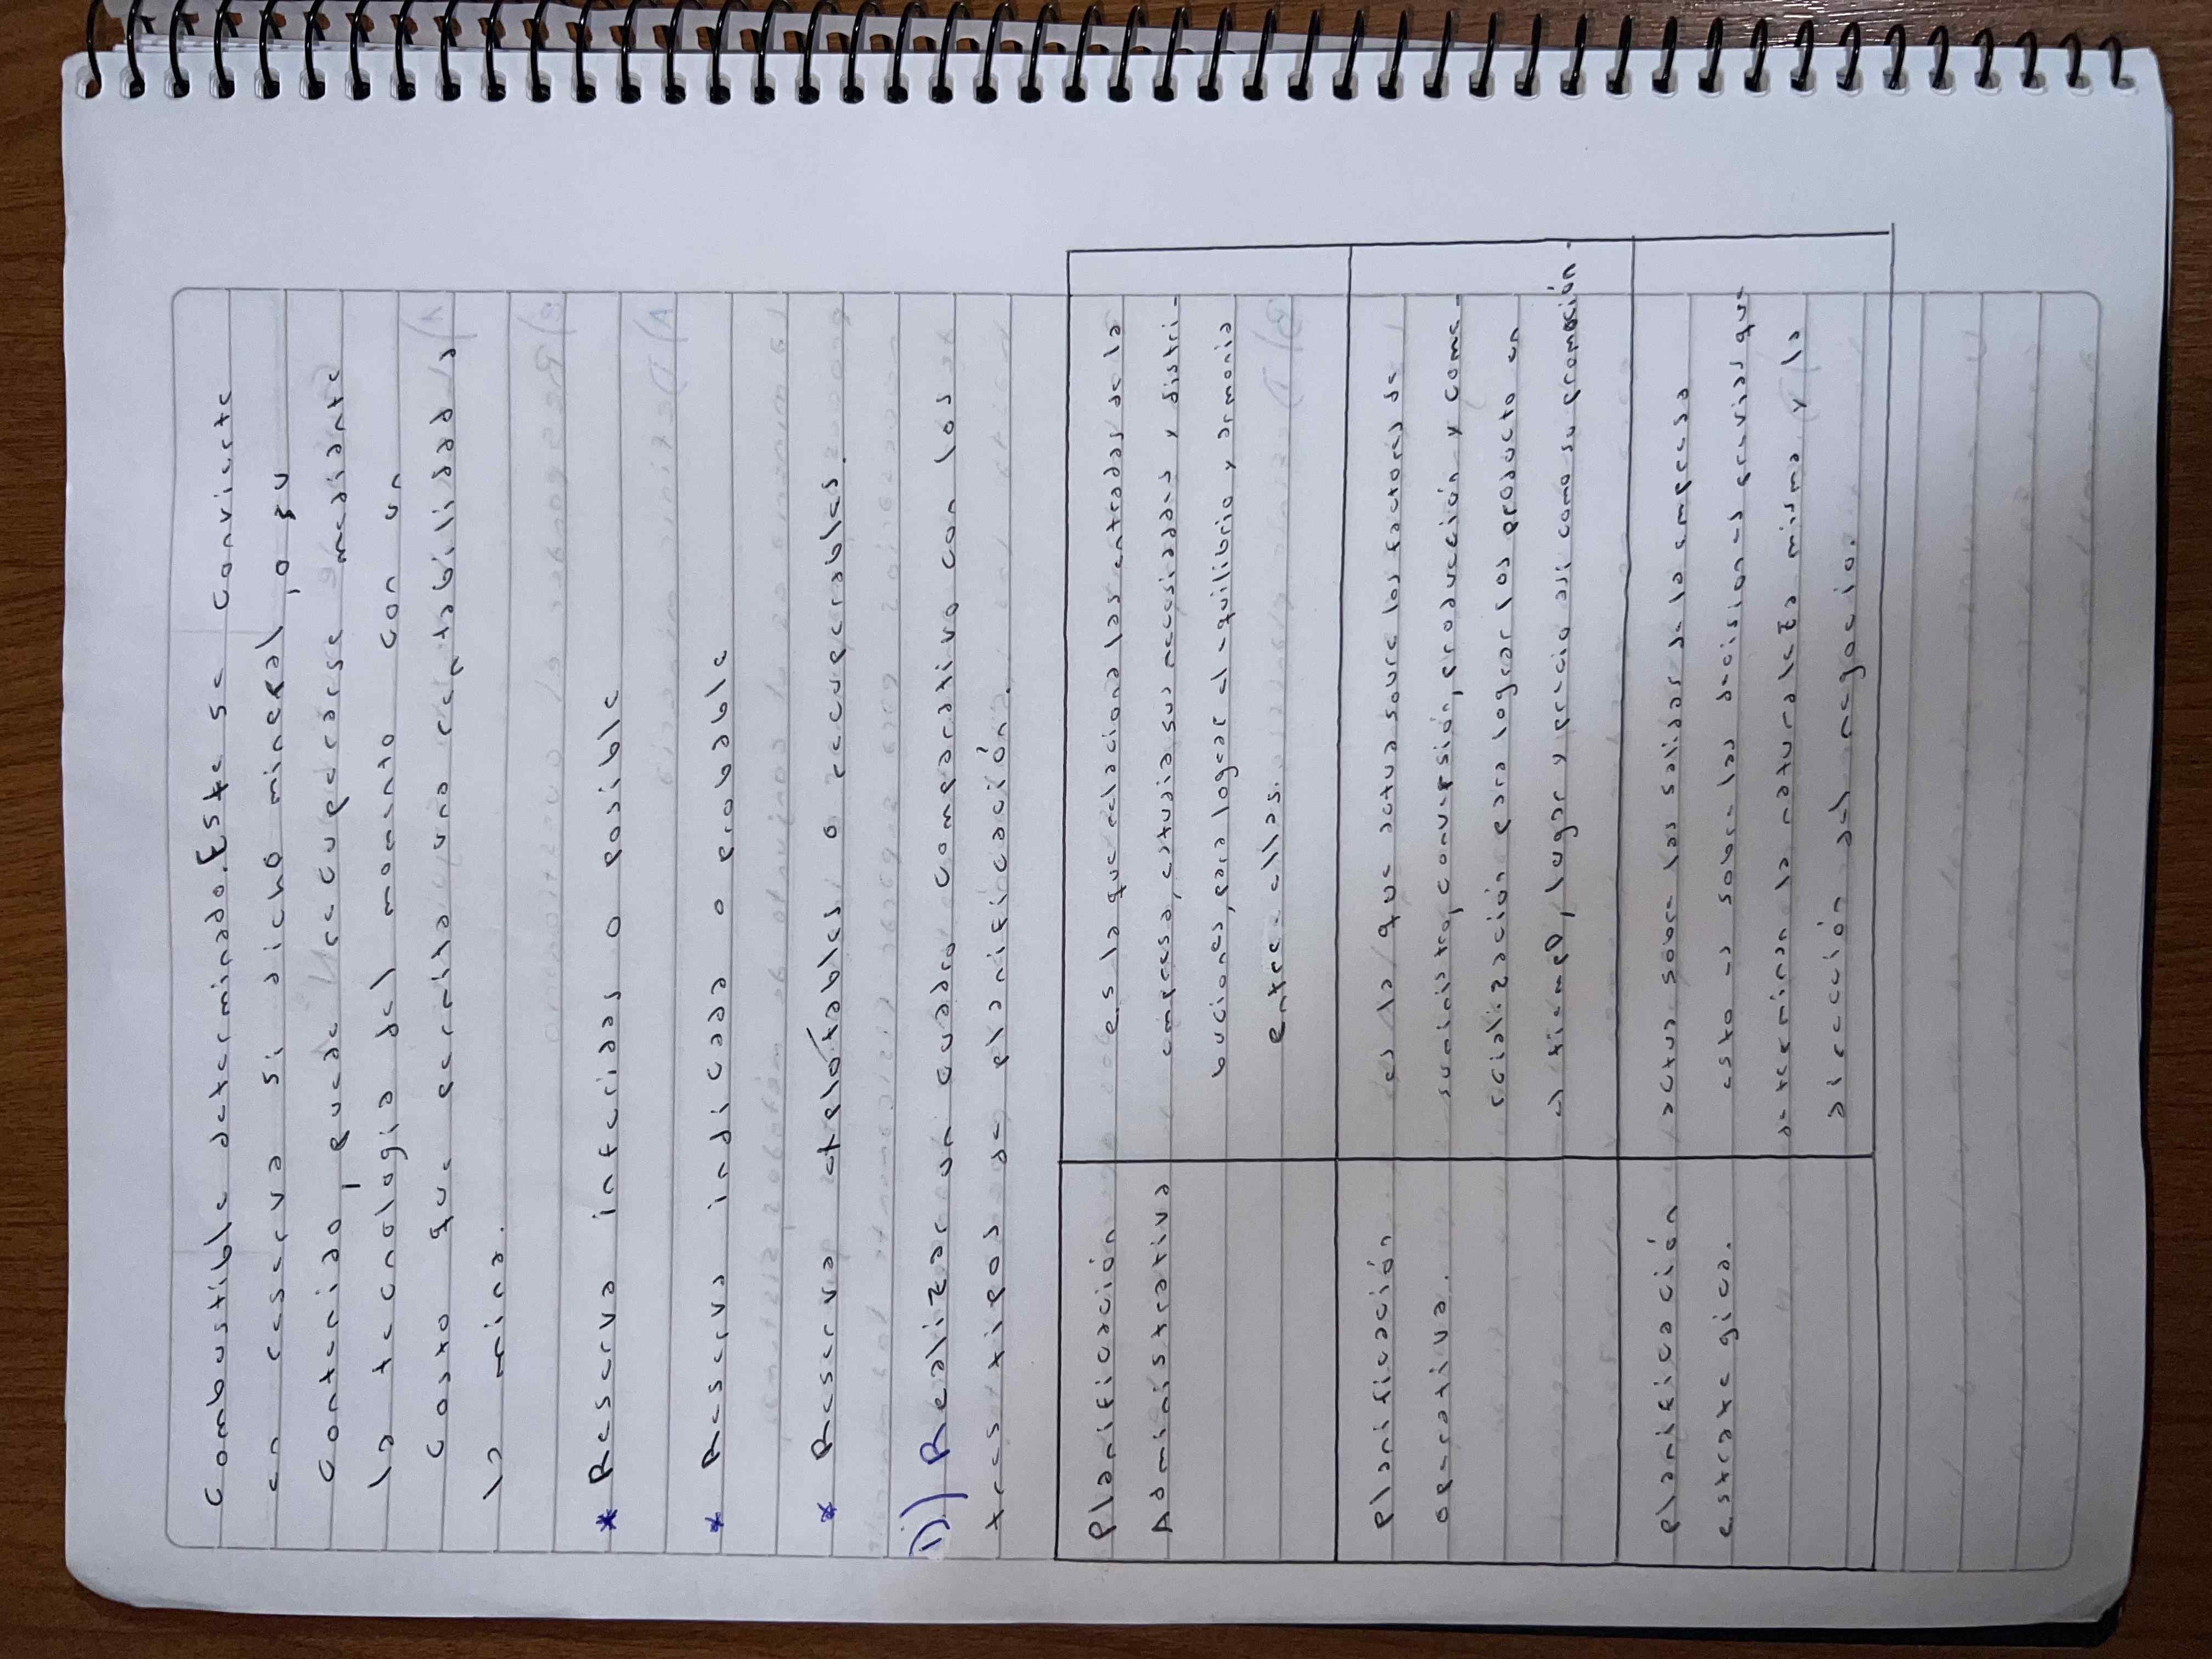 Combustible determinado. Este se convierte
en reserva si dicho mineral, o su
contenido, puede recuperarse mediante
la tecnologia del momento con un
costo que permita una rentabilidad a
la mina.
* Reserva inferidas o posible
* Reserva indicada o probable
* Reserva explotables o recuperables.
i) Realizar un cuadro comparativo con los
tres tipos de planificación.
Planificación
Administrativa
es la que relaciona las entradas de la
empresa, estudia sus necesidades y distri-
buciones, para lograr el equilibrio y armonia
entre ellas.
Planificación
operativa.
es la que actua sovre los factores de
suministro, conversión, producción y come-
rcialización para lograr los producto en
el tiempo, lugar y precio asi como su promoción.
Planificación
estrategica.
actua sobre las salidas de la empresa
esto es sobre las decisiones previas que
determinan la naturaleza misma y la
dirección del negocio.